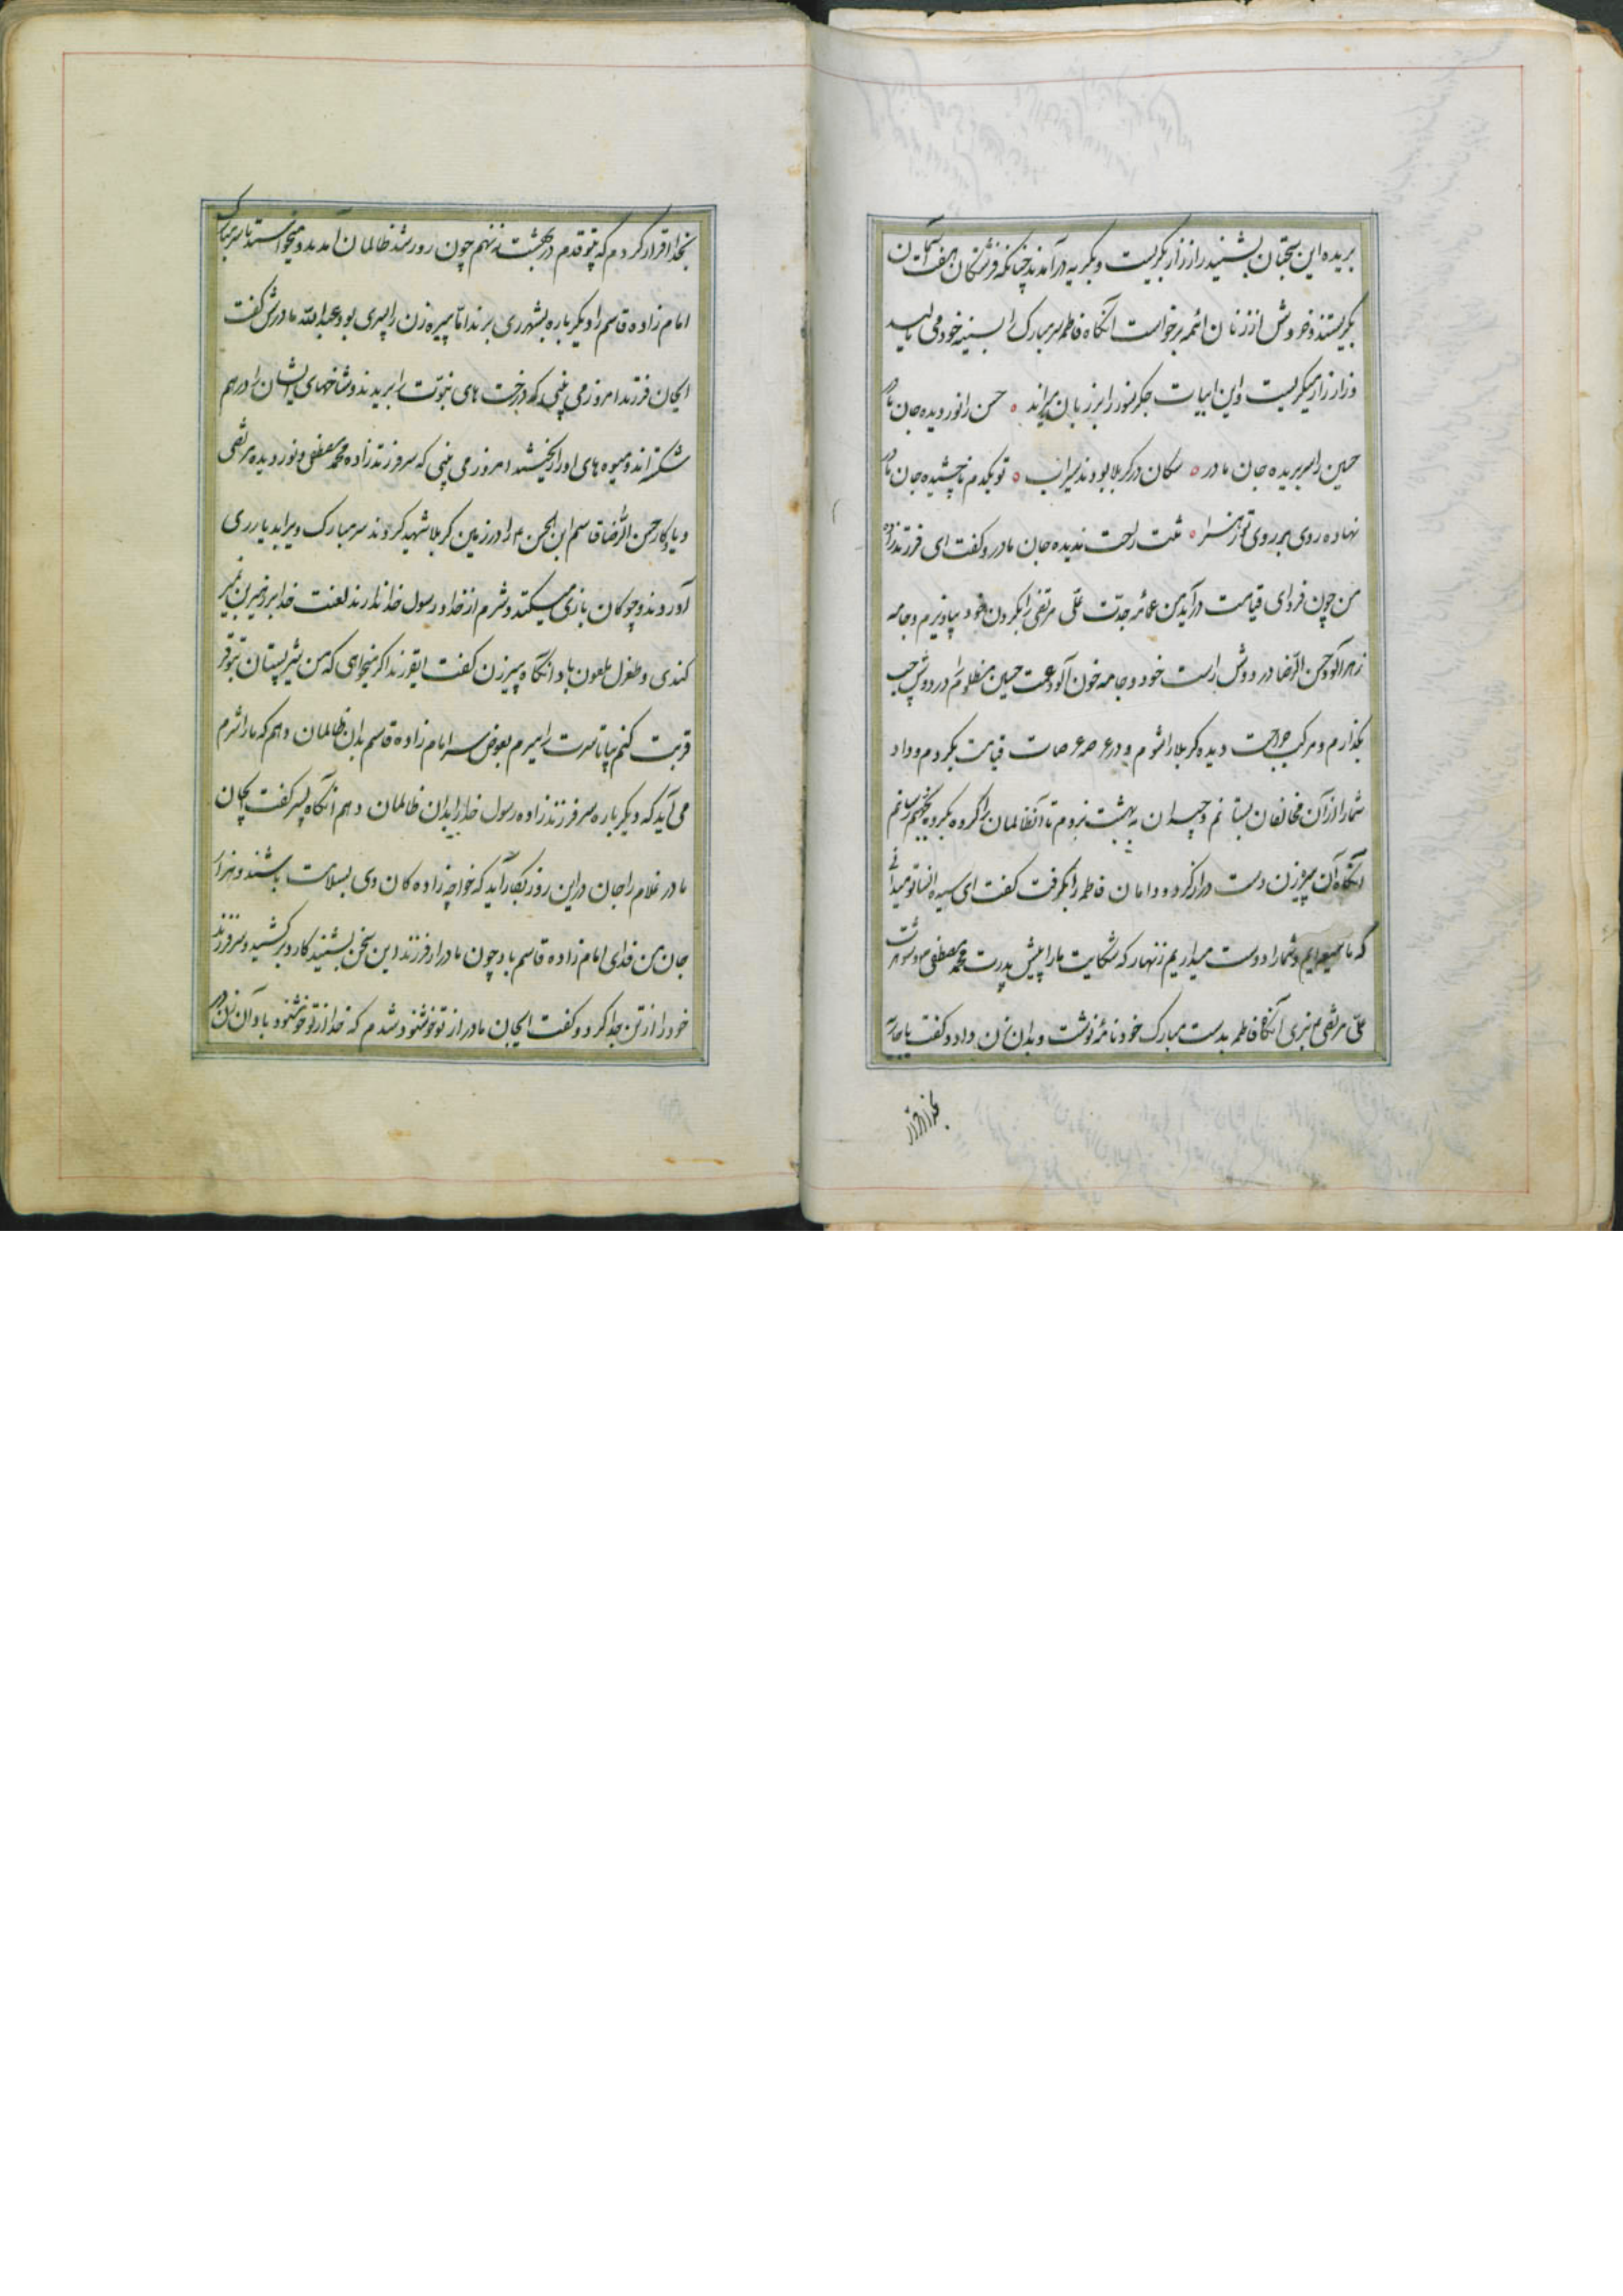 بریده این سخنان بشنید زار زار بگریست و بگریه درآمدند چنانکه فرشتگان هفت آسمان
بگریستند و خروش از زنان ائمه برخواست انگاه فاطمه سر مبارک را بسینه خود می مالید
و زار زار میگریست و این ابیات جگرسوز را بر زبان میراند ٥ حسن را نور دیده جان مادر
حسین را سر بریده جان مادر ٥ سکان در کربلا بودند سیراب ٥ تو یکدم ناچشیده جان مادر
نهاده روی بر روی تو زهرا ٥ راحت ندیده جان مادر و گفت ای فرزندزاده
من چون فردای قیامت درآید من عمامه جدت علی مرتضی را بگردن خود بیاویزم و جامه
زهرآلود حسن الرضا در دوش راست خود و جامه خون آلود عمت حسین مظلوم را در دوش چپ
بگذارم و مرکب دیده کربلا را شوم و در عرصه عرصات قیامت بگردم و داد
شما را از آن مخالفان بستانم و به بهشت نروم تا آنظالمان را گروه بگروه بجهنم رسانم
انگاه آن پیرزن دست دراز کرد و دامان فاطمه را بگرفت گفت ای سیده النسا تو میدانی
که ما شیعه‌ایم و شما را دوست میداریم زنهار که شکایت ما را پیش پدرت محمد مصطفی و شوهرت
علی مرتضی نبری آنگاه فاطمه بدست مبارک خود نامه نوشت و بدان زن داد و گفت
بخدا اقرار
بخدا اقرار کردم که بیتو قدم در بهشت ننهم چون روز شد ظالمان آمدند و میخواستند تا سر مبارک
امام زاده قاسم را دیگر باره بشهر ری برند اما پیره زن را پسری بود عبدالله مادرش گفت
ایجان فرزند امروز می بینی که درخت های نبوت را بریدند و شاخهای ایشان را درهم
شکسته اند و میوه های او را ریختند امروز می بینی که سر فرزندزاده محمد مصطفی و نور دیده مرتضی
و یادگار حسن الرضا قاسم ابن الحسن را در زمین کربلا شهید کردند سر مبارک ویرا بدیار ری
آوردند و چوکان بازی میکنند و شرم از خدا و رسول خدا ندارند لعنت خدا بر
کندی و طغرل ملعون باد انگاه پیرزن گفت ایفرزند اگر میخواهی که من شیر پستان بتو
قربت کنم بیا تا سرت را ببرم بعوض سر امام زاده قاسم بدان ظالمان دهم که مرا شرم
می آید که دیگر باره سر فرزندزاده رسول خدا را بدان ظالمان دهم انگاه پسر گفت ایجان
مادر غلام را جان در این روز بکار آید که خواجه زاده کان وی بسلامت باشند و هزار
جان من فدای امام زاده قاسم باد چون مادر از فرزند این سخن بشنید کارد برکشید و سر فرزند
خود را از تن جدا کرد و گفت ایجان مادر از تو خوشنود شدم که خدا از تو خوشنود باد آن زن